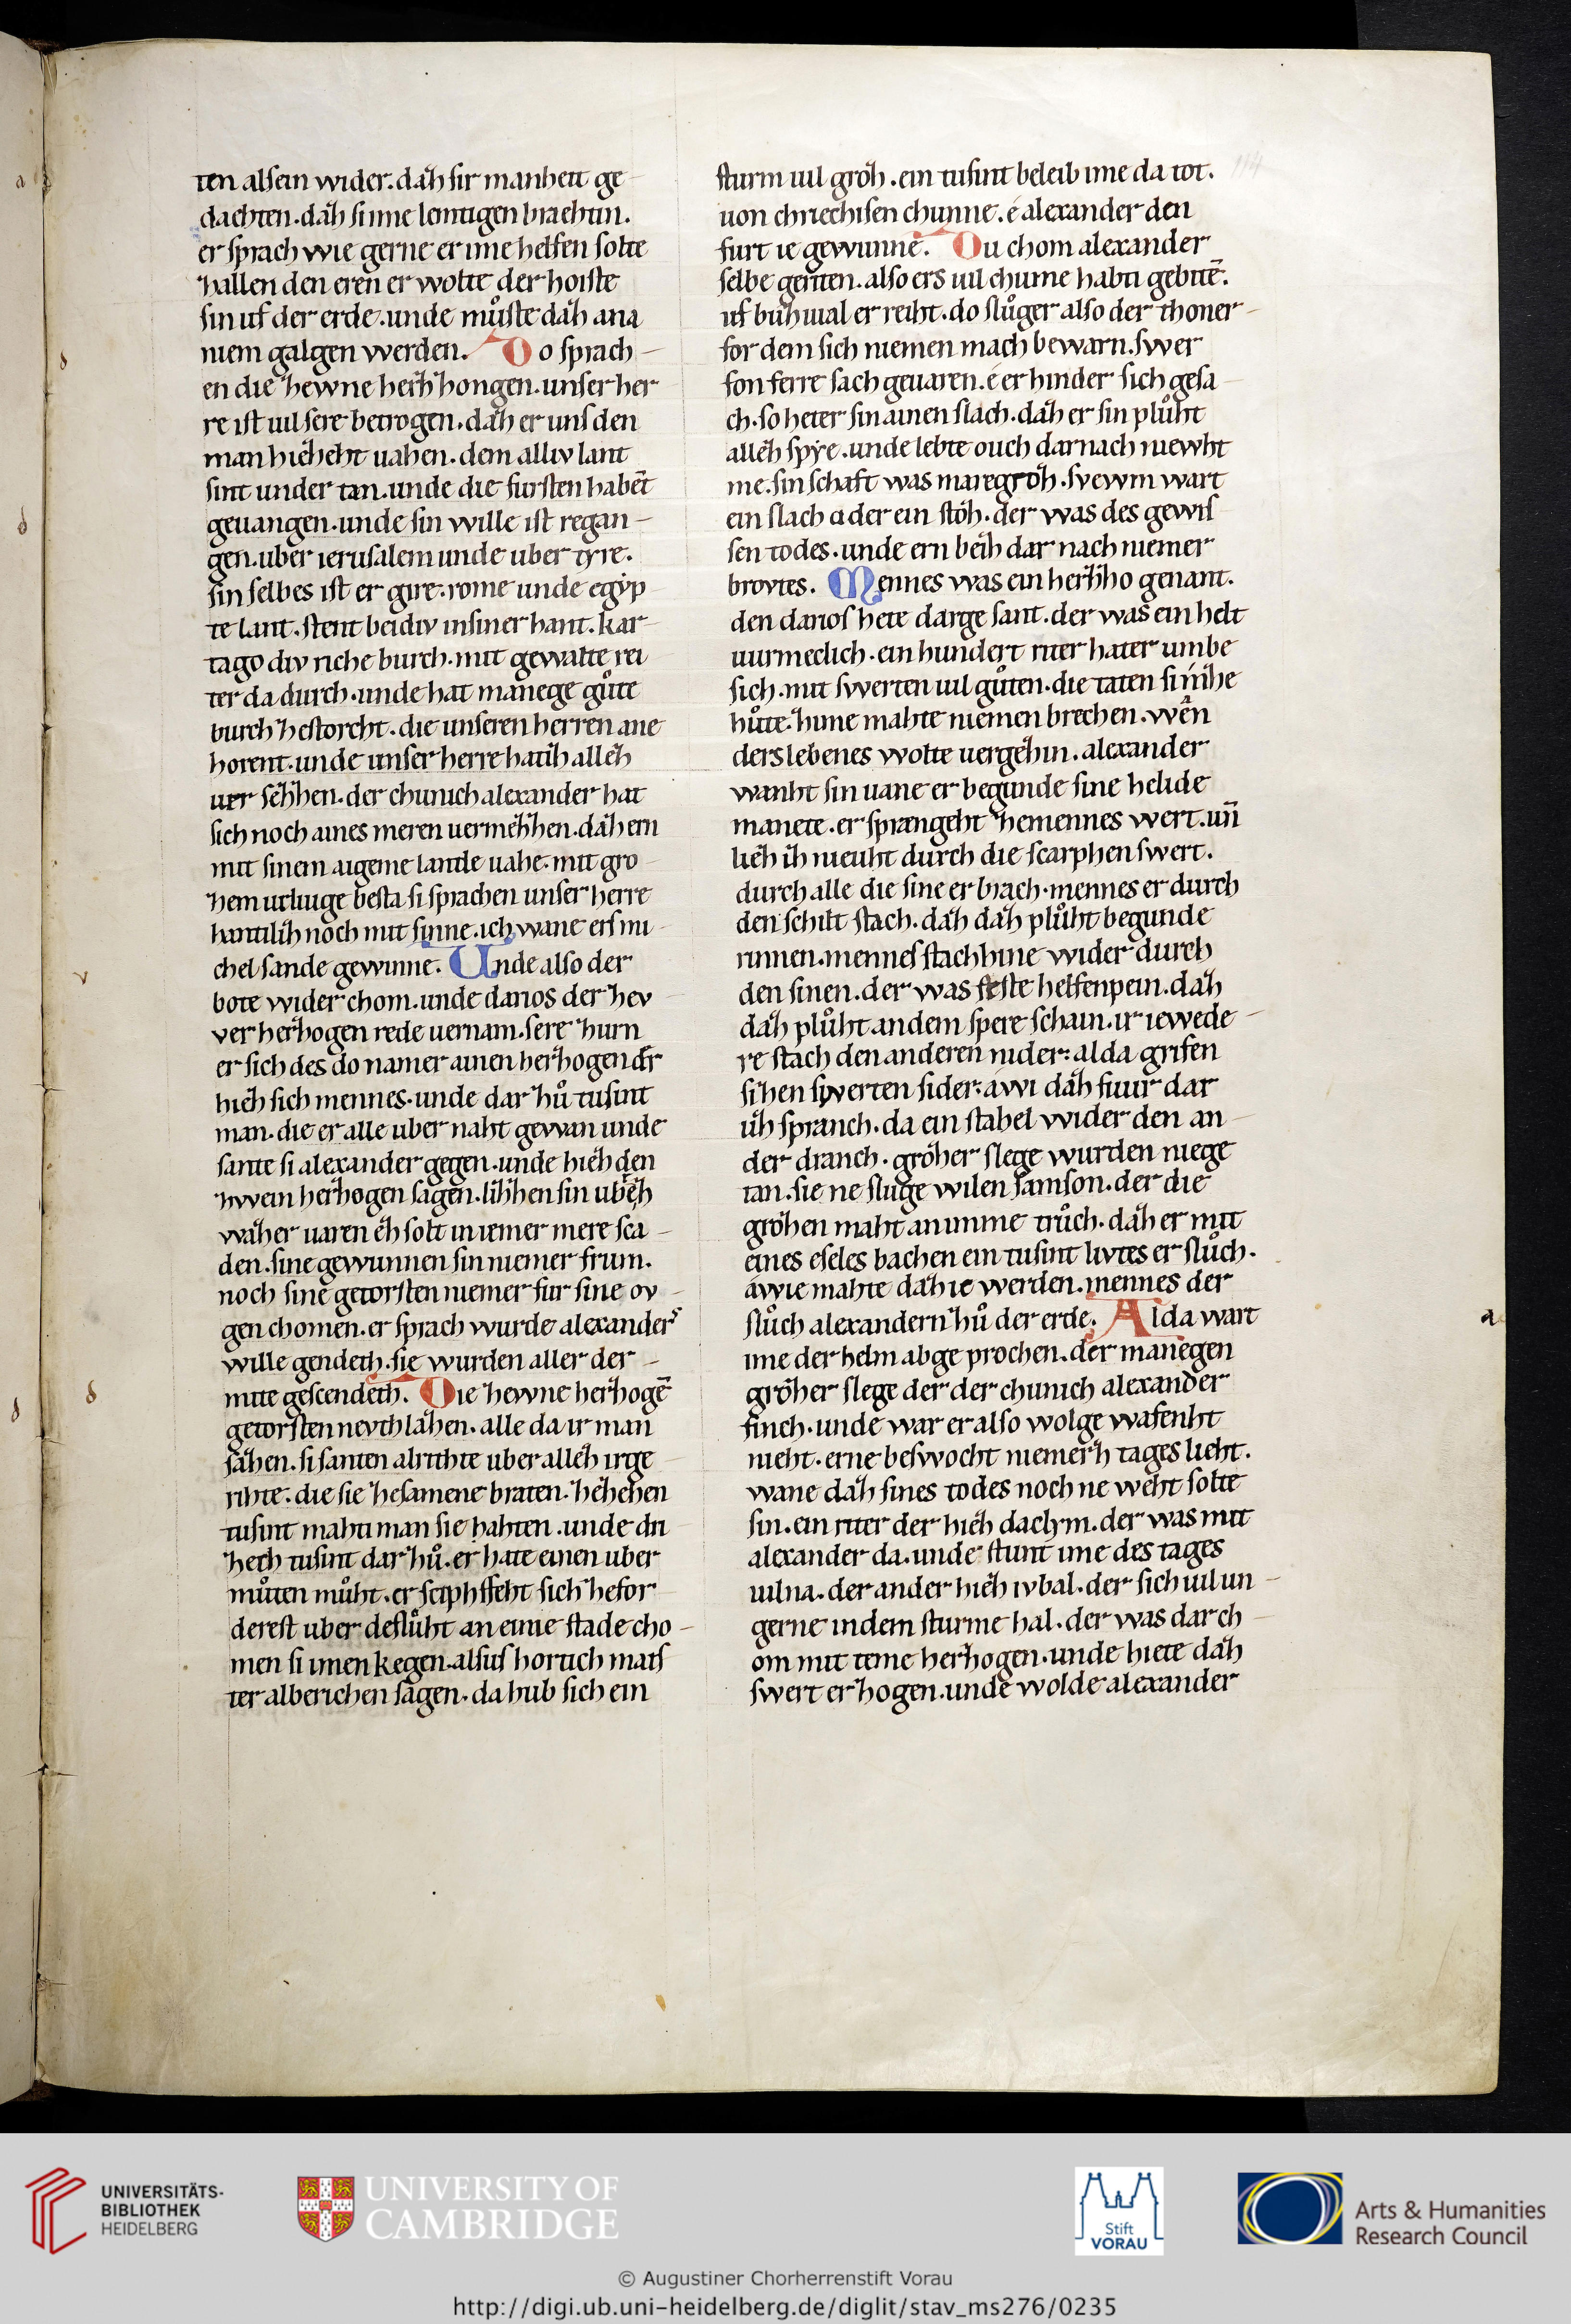 ten alsein wider. daz sir manheit ge
dachten. daz si ime lentigen braehtin.
er sprach wie gerne er ime helfen solte
zallen den eren er wolte der hoiste
sin uf der erde. unde můste daz ana
niem galgen werden. Do sprach
en die zewne herzhongen. unser her
re ist uil sere betrogen. daz er uns den
man hiezzeht uahen. dem alliv lant
sint under tan. unde die fursten habēt
geuangen. unde sin wille ist regan
gen. uber ierusalem unde uber tyre.
sin selbes ist er gire. rome unde egyp
te lant. stent beidiv insiner hant. kar
tago div riche burch. mit gewalte rei
ter da durch. unde hat manege gůte
burch zestorcht. die unseren herren ane
horent. unde unser herre hatiz allez
uer sezzen. der chunich alexander hat
sich noch aines meren uermezzen. daz ern
mit sinem aigeme lande uahe. mit gro
zem urliuge besta si sprachen unser herre
hantiliz noch mit sinne. ich wane ers mi
chel sande gewinne. Unde also der
bote wider chom. unde darios der zev
ver herzogen rede uernam. sere zurn
er sich des do namer ainen herzogen dr̄
hiez sich mennes. unde dar zů tusint
man. die er alle uber naht gewan unde
sante si alexander gegen. unde hiez den
zwein herzogen sagen. lizzen sin ubez
wazer uaren ez solt in iemer mere sca
den. sine gewunnen sin niemer frum.
noch sine getorsten niemer fur sine ov
gen chomen. er sprach wurde alexanders
wille gendeth. sie wurden aller der
mite gescendeth. Die zewne herzogē
getorsten nevth lazen. alle da ir man
sazen. si santen alrithte uber allez irge
rihte. die sie zesamene braten. zehzehen
tusint mahti man sie hahten. unde dri
zech tusint dar zů. er hate einen uber
můten můht. er sciphffeht sich zefor
derest uber deflůht an einie stade cho
men si imen kegen. alsus hortich mais
ter alberichen sagen. da hub sich ein
sturm uil groz. ein tusint beleib ime da tot.
uon chriechisen chunne. é alexander den
furt ie gewunne. Du chom alexander
selbe geriten. also ers uil chume habti gebitē.
uf buzival er reiht. do slůger also der thoner
for dem sich niemen mach bewarn. swer
fon ferre sach geuaren. é er hinder sich gesa
ch. so heter sin ainen slach. daz er sin plůht
allez spŷe. unde lebte ouch darnach niewht
me. sin schaft was maregroz. svewm wart
ein slach ader ein stoz. der was des gewis
sen todes. unde ern beiz dar nach niemer
brovtes. Mennes was ein herzho genant.
den darios hete darge sant. der was ein helt
uurmeclich. ein hundert riter hater umbe
sich. mit swerten uil gůten. die taten simize
hůte. zime mahte niemen brechen. wēn
ders lebenes wolte uergezin. alexander
wanht sin uane er begunde sine helide
manete. er sprængeht zemennes wert. uñ
liez iz nieuht durch die scarphen swert.
durch alle die sine er brach. mennes er durch
den schilt stach. daz daz plůht begunde
rinnen. mennes stach hine wider durch
den sinen. der was feste helfenpein. daz
daz plůht an dem spere schain. ir iewede
re stach den anderen nider: alda grifen
sizen swerten sider: awi daz fiuir dar
ůz spranch. da ein stahel wider den an
der dranch. grozer slege wurden niege
tan. sie ne sluge wilen samson. der die
grozen maht an imme trůch. daz er mit
eines eseles bachen ein tusint livtes er slůch.
awie mahte daz ie werden. mennes der
slůch alexandern zů der erde. Alda wart
ime der helm abge prochen. der manegen
grozer slege der der chunich alexander
finch. unde war er also wolge wafenht
nieht. erne beswocht niemerz tages lieht.
wane daz sines todes noch ne weht solte
sin. ein riter der hiez daclym. der was mit
alexander da. unde stunt ime des tages
uilna. der ander hiez ivbal. der sich uil un
gerne indem sturme hal. der was dar ch
om mit teme herzogen. unde hiete daz
swert erzogen. unde wolde alexander
114
a
UNIVERSITÄTS-
BIBLIOTHEK
HEIDELBERG
UNIVERSITY OF
CAMBRIDGE
Stift
VORAU
Arts & Humanities
Research Council
© Augustiner Chorherrenstift Vorau
http://digi.ub.uni-heidelberg.de/diglit/stav_ms276/0235